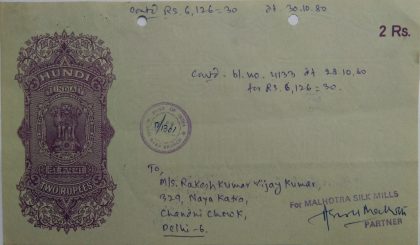 Contd Rs 6,126=30 dt. 30.10.80
2 Rs.
HUNDI
INDIA
bl. no. 4133 dt 28.10.80
for Rs. 6,126=30.
TWO RUPEES
To,
M/s. Rakesh Kumar Vijay Kumar,
329, Naya Katra,
Chandni Chowk,
Delhi-6.
For MALHOTRA SILK MILLS
PARTNER